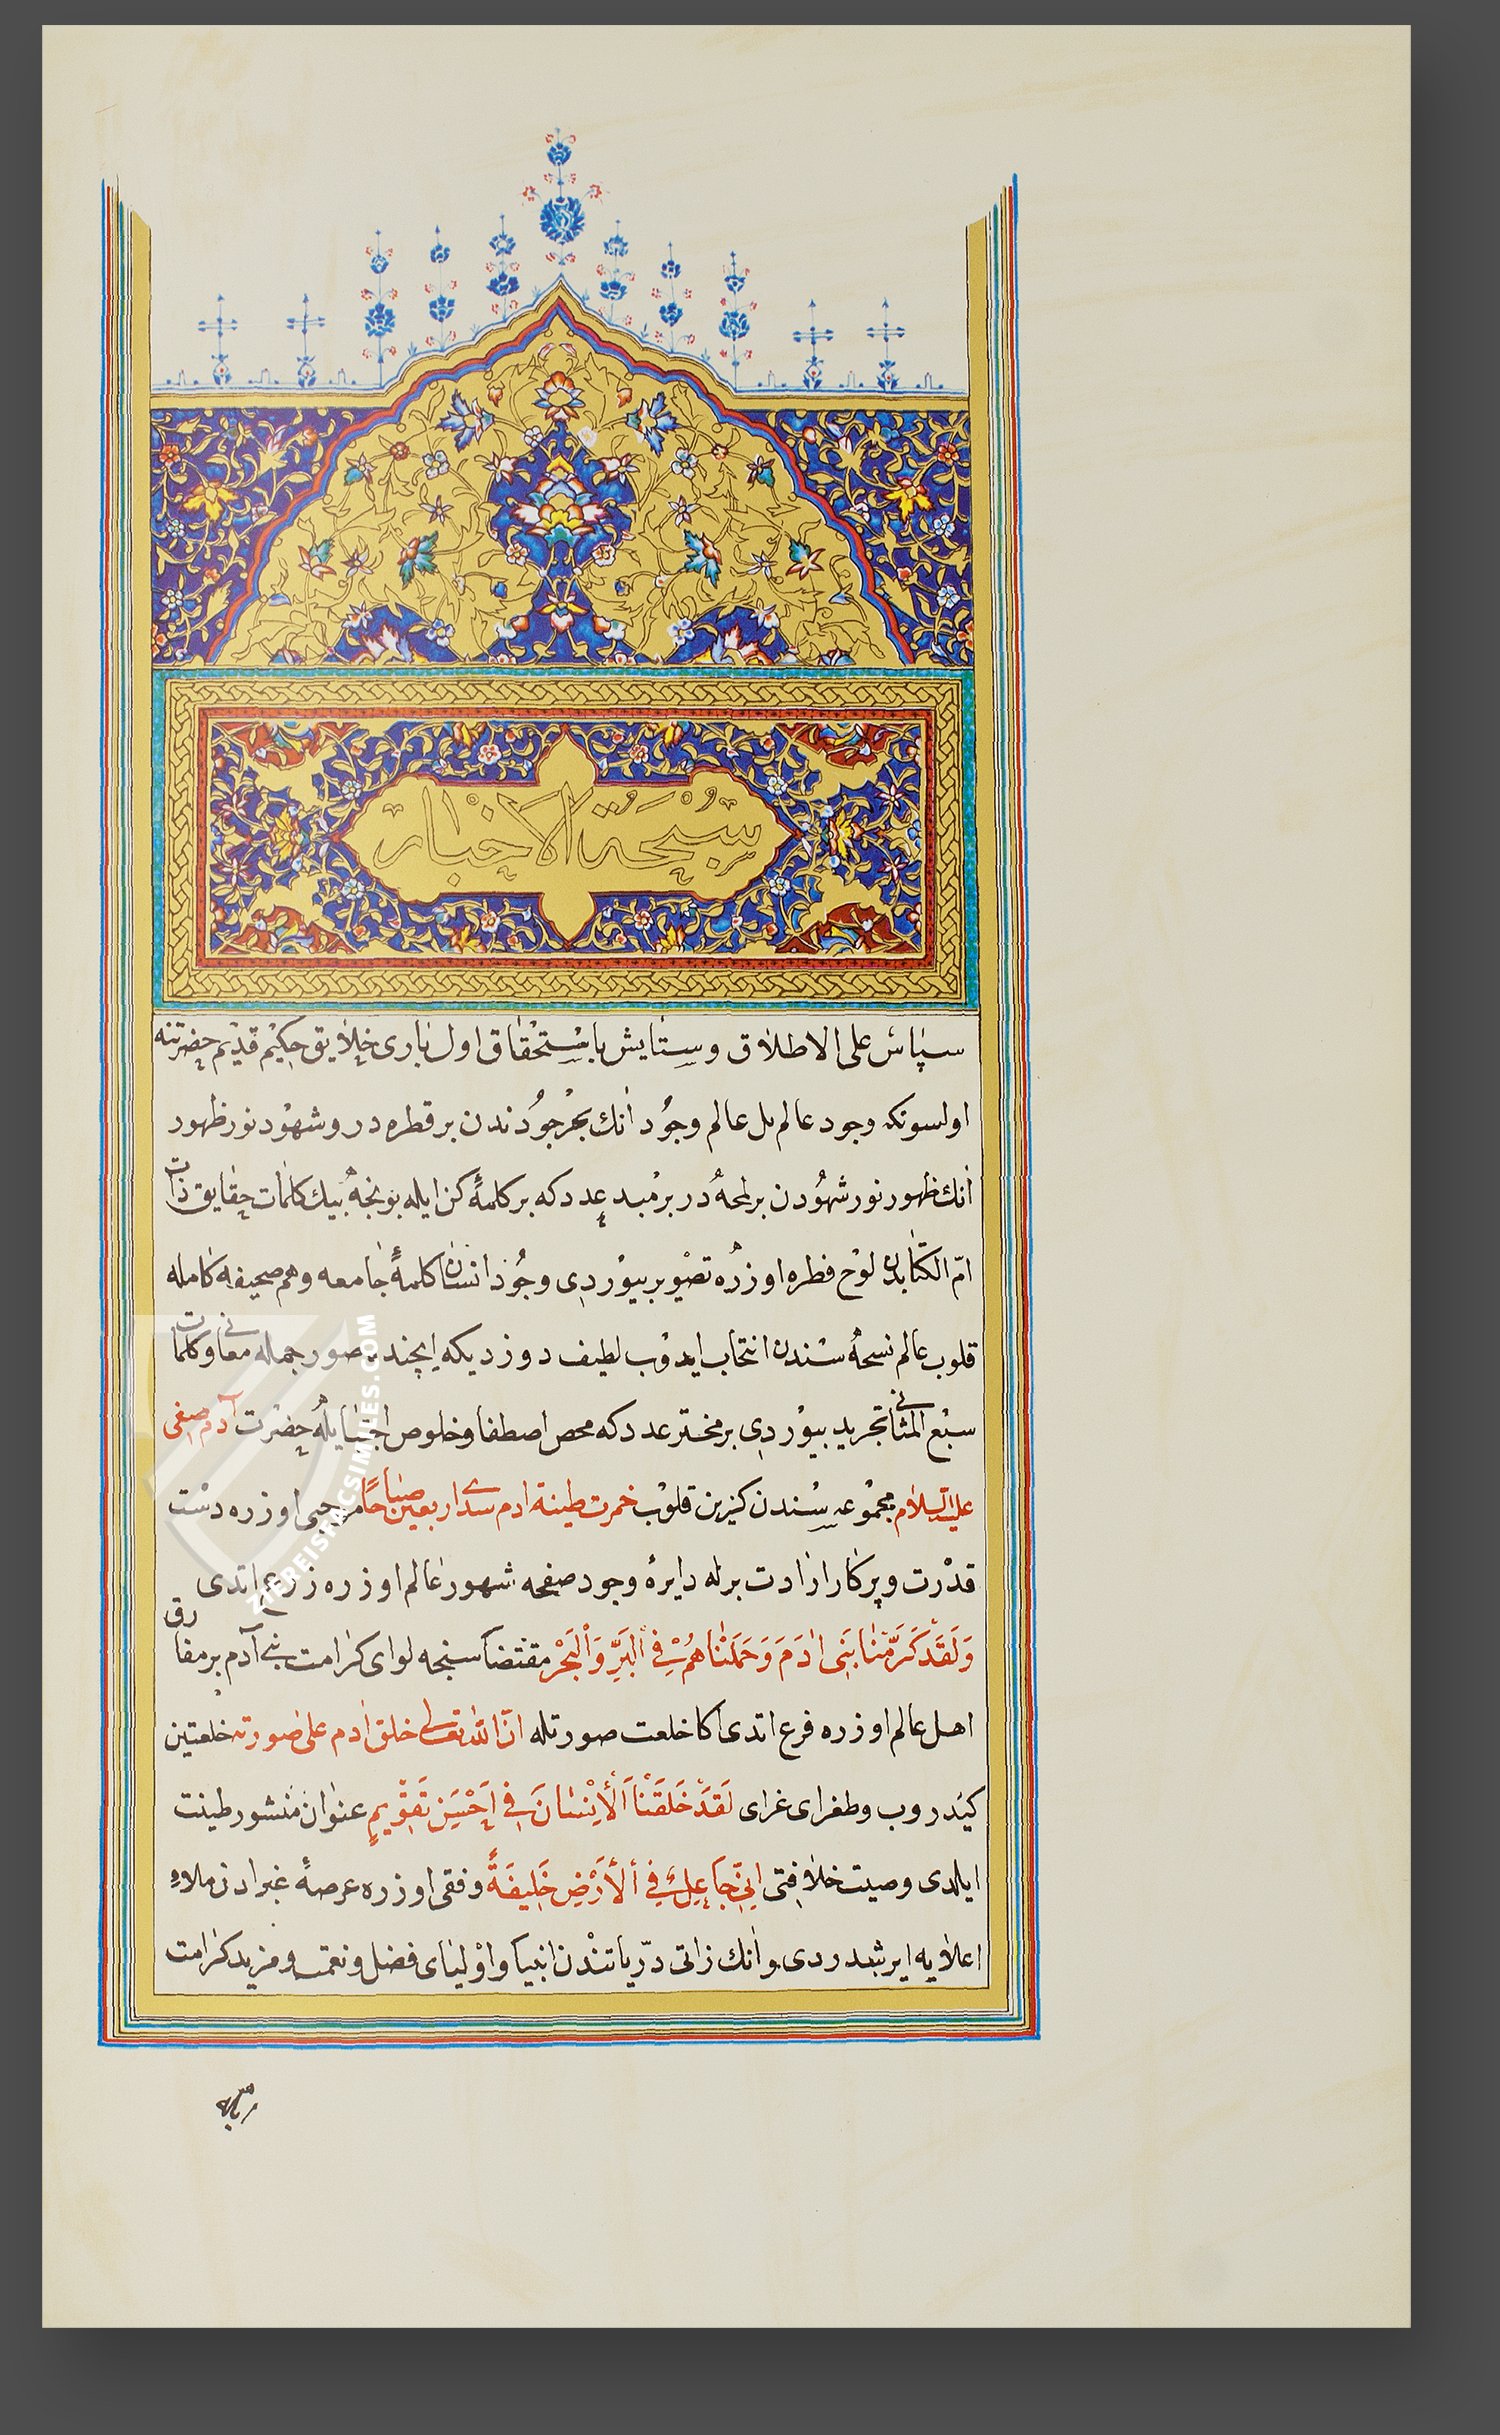 سبحة الاخبار
سپاس على الاطلاق و ستايش باستحقاق اول بارى خلايق حكيم قديم حضرتنه
اولسونكه وجود عالم بل عالم وجود انك بحر جودندن بر قطره در و شهود نور ظهور
انك ظهور نور شهودن بر لمحه در بر مبدعددكه بر كلمۀ كن ايله بو نجه بيك كلمات حقايق ذات
ام الكتابدن لوح فطره اوزره تصوير بيوردى وجود انسان كلمۀ جامعه وهم صحيفه كامله
قلوب عالم نسخه سندن انتخاب ايدوب لطيف دوزديكه ايچنده صور جمله معانى و كلمات
سبع المثانى تجريد بيوردى بر مخترعددكه محض اصطفا و خلوص اجتبا يله حضرت آدم صفى
عليه السلام مجموعه سندن كزين قلوب خمرت طينة ادم بيدى اربعين صباحًا مرجبى اوزره دست
قدرت و پركار ارادت برله دايرۀ وجود صفحه شهور عالم اوزره زرع اتدى
وَلَقَدْ كَرَّمْنَا بَنِى اٰدَمَ وَحَمَلْنَاهُمْ فِى اَلْبَرِّ وَاَلْبَحْرِ مقتضاسنجه لواى كرامت بنى آدم بر مفارق
اهل عالم اوزره فرع اتدى اكا خلعت صورتله انّ الله تعالى خلق ادم على صورته خلعتين
كيدروب و طغراى غراى لَقَدْ خَلَقْنَا اَلْاِنْسَانَ فِى اَحْسَنِ تَقْوِيمٍ عنوان منشور طينت
ايلدى وصيت خلافتى اِنِّى جَاعِلٌ فِى اَلْاَرْضِ خَلِيفَةً وفقى اوزره عرصۀ غبرادن ملاء
اعلايه ايرشدردى و انك ذاتى درياتندن انبيا و اولياى فضل و نعمت و مزيد كرامت
ZIEREISFACSIMILES.COM